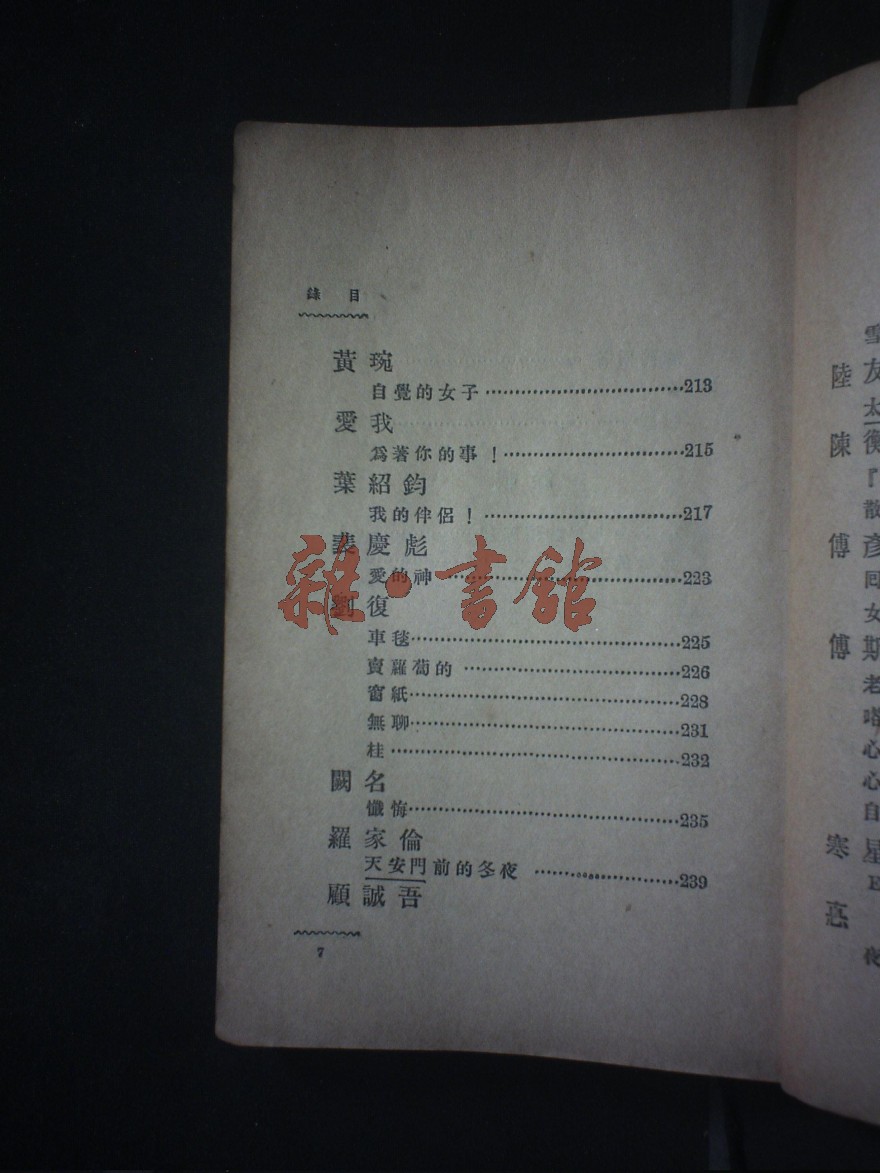 錄目
黃琬
自覺的女子 213
愛我
爲著你的事！ 215
葉紹鈞
我的伴侶！ 217
裴慶彪
愛的神 223
劉復
車毯 225
賣蘿蔔的 226
窗紙 228
無聊 231
桂 232
闕名
懺悔 235
羅家倫
天安門前的冬夜 239
顧誠吾
7
雜·書館
陸友
太
陳衡
『
散
傅彥
回
女
傅斯
老
心
心
自
寒星
E
夜